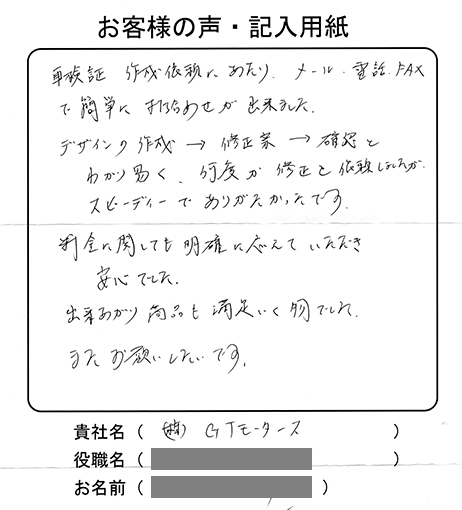 お客様の声・記入用紙
車検証 作成依頼にあたり、メール、電話、FAX
で簡単に打ち合わせが出来ました。
デザインの作成 → 修正案 → 確認と
わかり易く、何度か修正を依頼しましたが、
スピーディーでありがたかったです。
料金に関しても明確に応えていただき
安心でした。
出来あがり商品も満足いく物でした。
またお願いしたいです。
貴社名（ ㈱ GTモータース ）
役職名（ ）
お名前（ ）